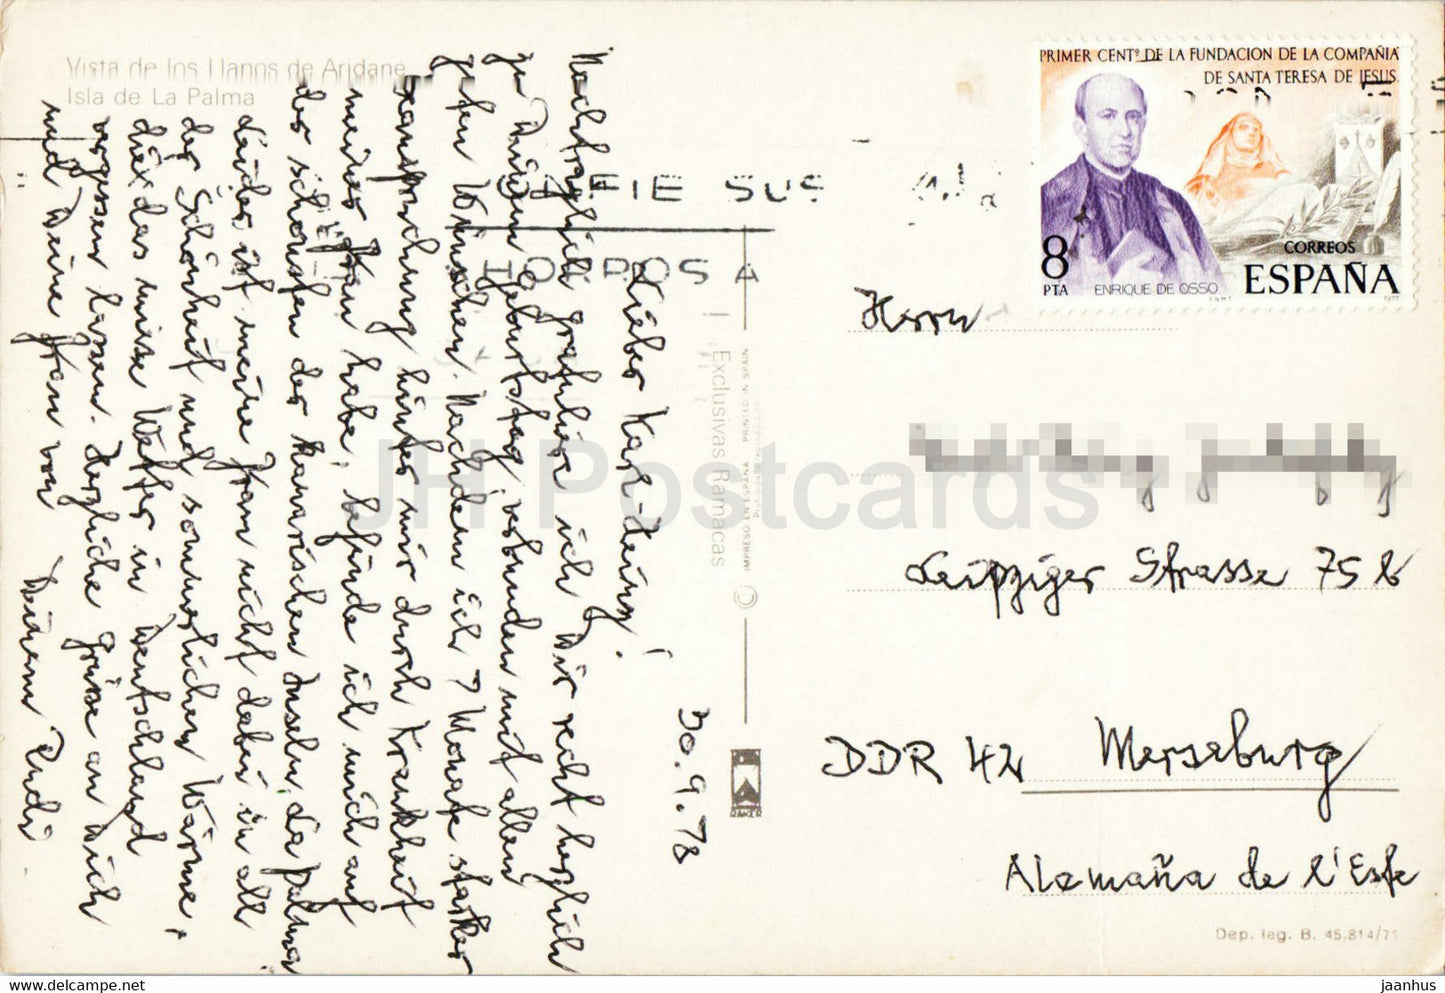 Vista de los Llanos de Aridane
Isla de La Palma
30.9.78
Lieber Karl-Heinz!
Nachträglich gratuliere ich Dir recht herzlich
zu Deinem Geburtstag, verbunden mit allen
guten Wünschen. Nachdem ich 7 Monate starker
Beanspruchung hinter mir durch Krankheit
meiner Frau habe, befinde ich mich auf
der schönsten der kanarischen Inseln, La Palma
Leider ist meine Frau nicht dabei in all
der Schönheit und sommerlichen Wärme,
die das miese Wetter in Deutschland
vergessen lassen. Herzliche Grüsse an Dich
und Deine Frau von Deinem Rudi
Exclusivas Ramacas
IMPRESO EN ESPAÑA PRINTED IN SPAIN
Prohibida la reproducción
RAKER
PRIMER CENTº DE LA FUNDACION DE LA COMPAÑIA
DE SANTA TERESA DE JESUS.
8
PTA
ENRIQUE DE OSSO
CORREOS
ESPAÑA
F.N.M.T.
1977
Herrn
Leipziger Strasse 75 b
DDR 42 Merseburg
Alemaña de l'Este
Dep. leg. B. 45.814/71
JH Postcards
jaanhus
https://www.jhpostcards.com/